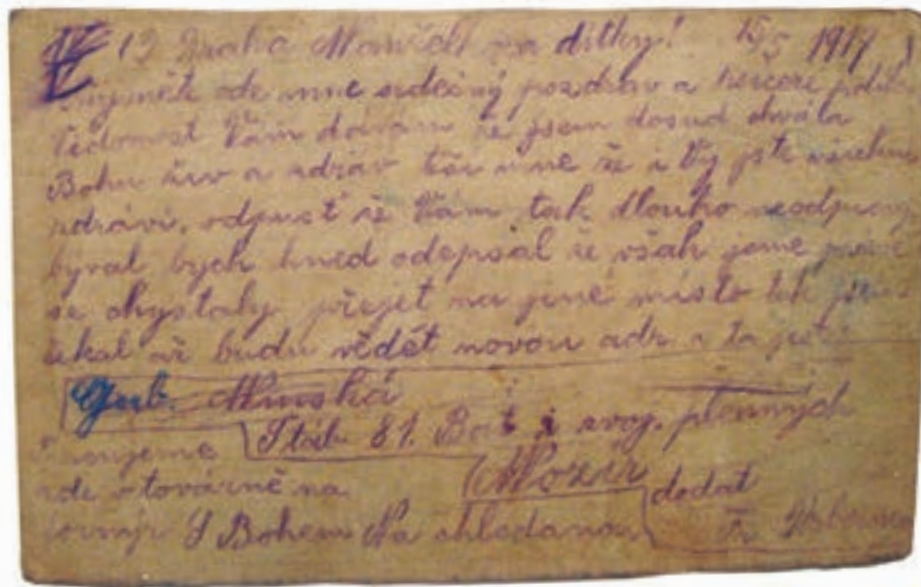 12 Draha Mančell a dítky! 15/5 1917
ode mne srdečný pozdrav a
Vědomost Vám dávám že jsem dosud chvála
Bohu živ a zdráv těší mne že i Vy jste všichni
zdrávi, odpusť že Vám tak dlouho
býval bych hned odepsal že však jsme právě
se chystaly přejet na jiné místo tak jsem
čekal až budu vědět novou adr. a ta jest:
Gub. Minská
Štáb 81. Bat. i voj. plenných
Mozir
zde v továrně na dodat
S Bohem Na shledanou Fr.